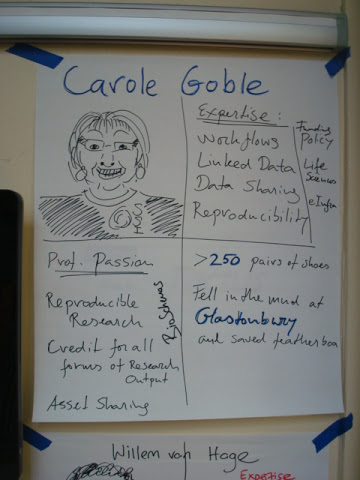 Carole Goble
Expertise :
Workflows
Linked Data
Data Sharing
Reproducibility
Funding
Policy
Life
Sciences
eInfra
Prof. Passion
Reproducible
Research
Credit for all
forms of Research
Output
Asset Sharing
>250 pairs of shoes
Fell in the mud at
Glastonbury
and saved featherboa
Willem van Hage
Expertise